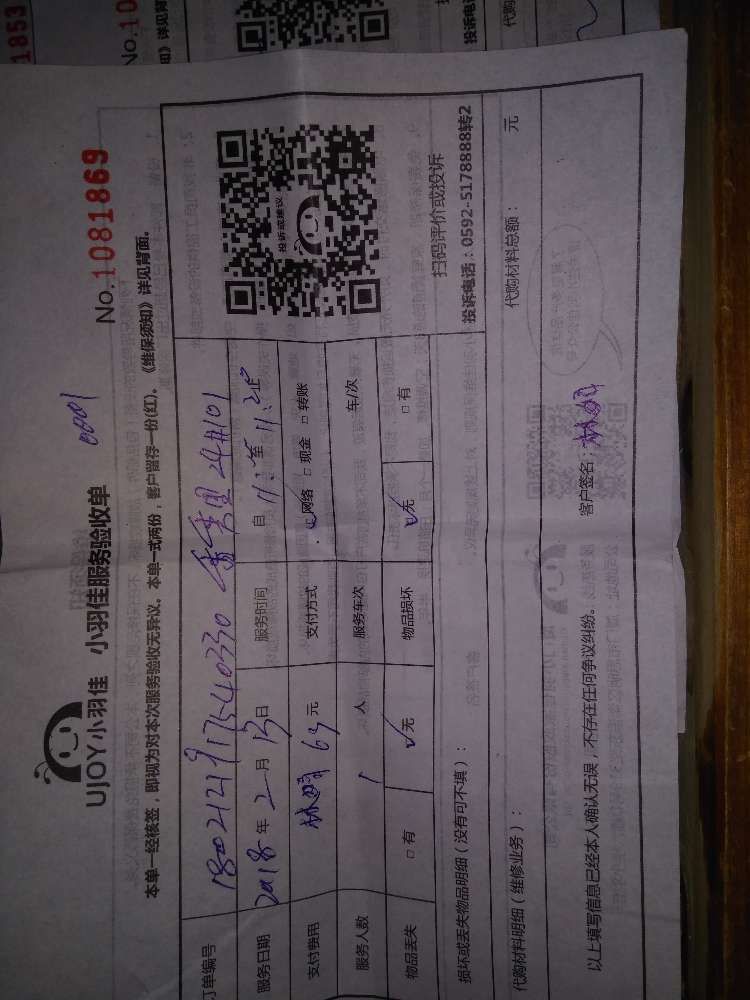 UJOY小羽佳 小羽佳服务验收单 0001 No.1081869
本单一经核签，即视为对本次服务验收无异议。本单一式两份，客户留存一份(红)。《维保须知》详见背面。
订单编号 24#101
服务日期 2018年2月13日 服务时间 自 11: 至 11:20
支付费用 林 63元 支付方式 网络 □现金 □转账
服务人数 1 人 服务车次 车/次
物品丢失 □有 无 物品损坏 无 □有
投诉或建议
扫码评价或投诉
投诉电话：0592-5178888转2
损坏或丢失物品明细（没有可不填）：
代购材料明细（维修业务）： 代购材料总额： 元
以上填写信息已经本人确认无误，不存在任何争议纠纷。 客户签名：林
No.10
1853
知》详见背
投诉电
代购